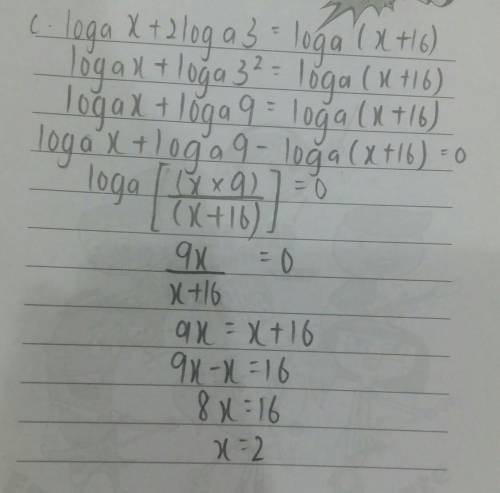 c. loga x + 2loga3 = loga (x+16)
logax + loga3² = loga (x+16)
logax + loga9 = loga(x+16)
logax + loga9 - loga(x+16) = 0
loga[(x×9)/(x+16)] = 0
9x/x+16 = 0
9x = x+16
9x-x = 16
8x = 16
x = 2